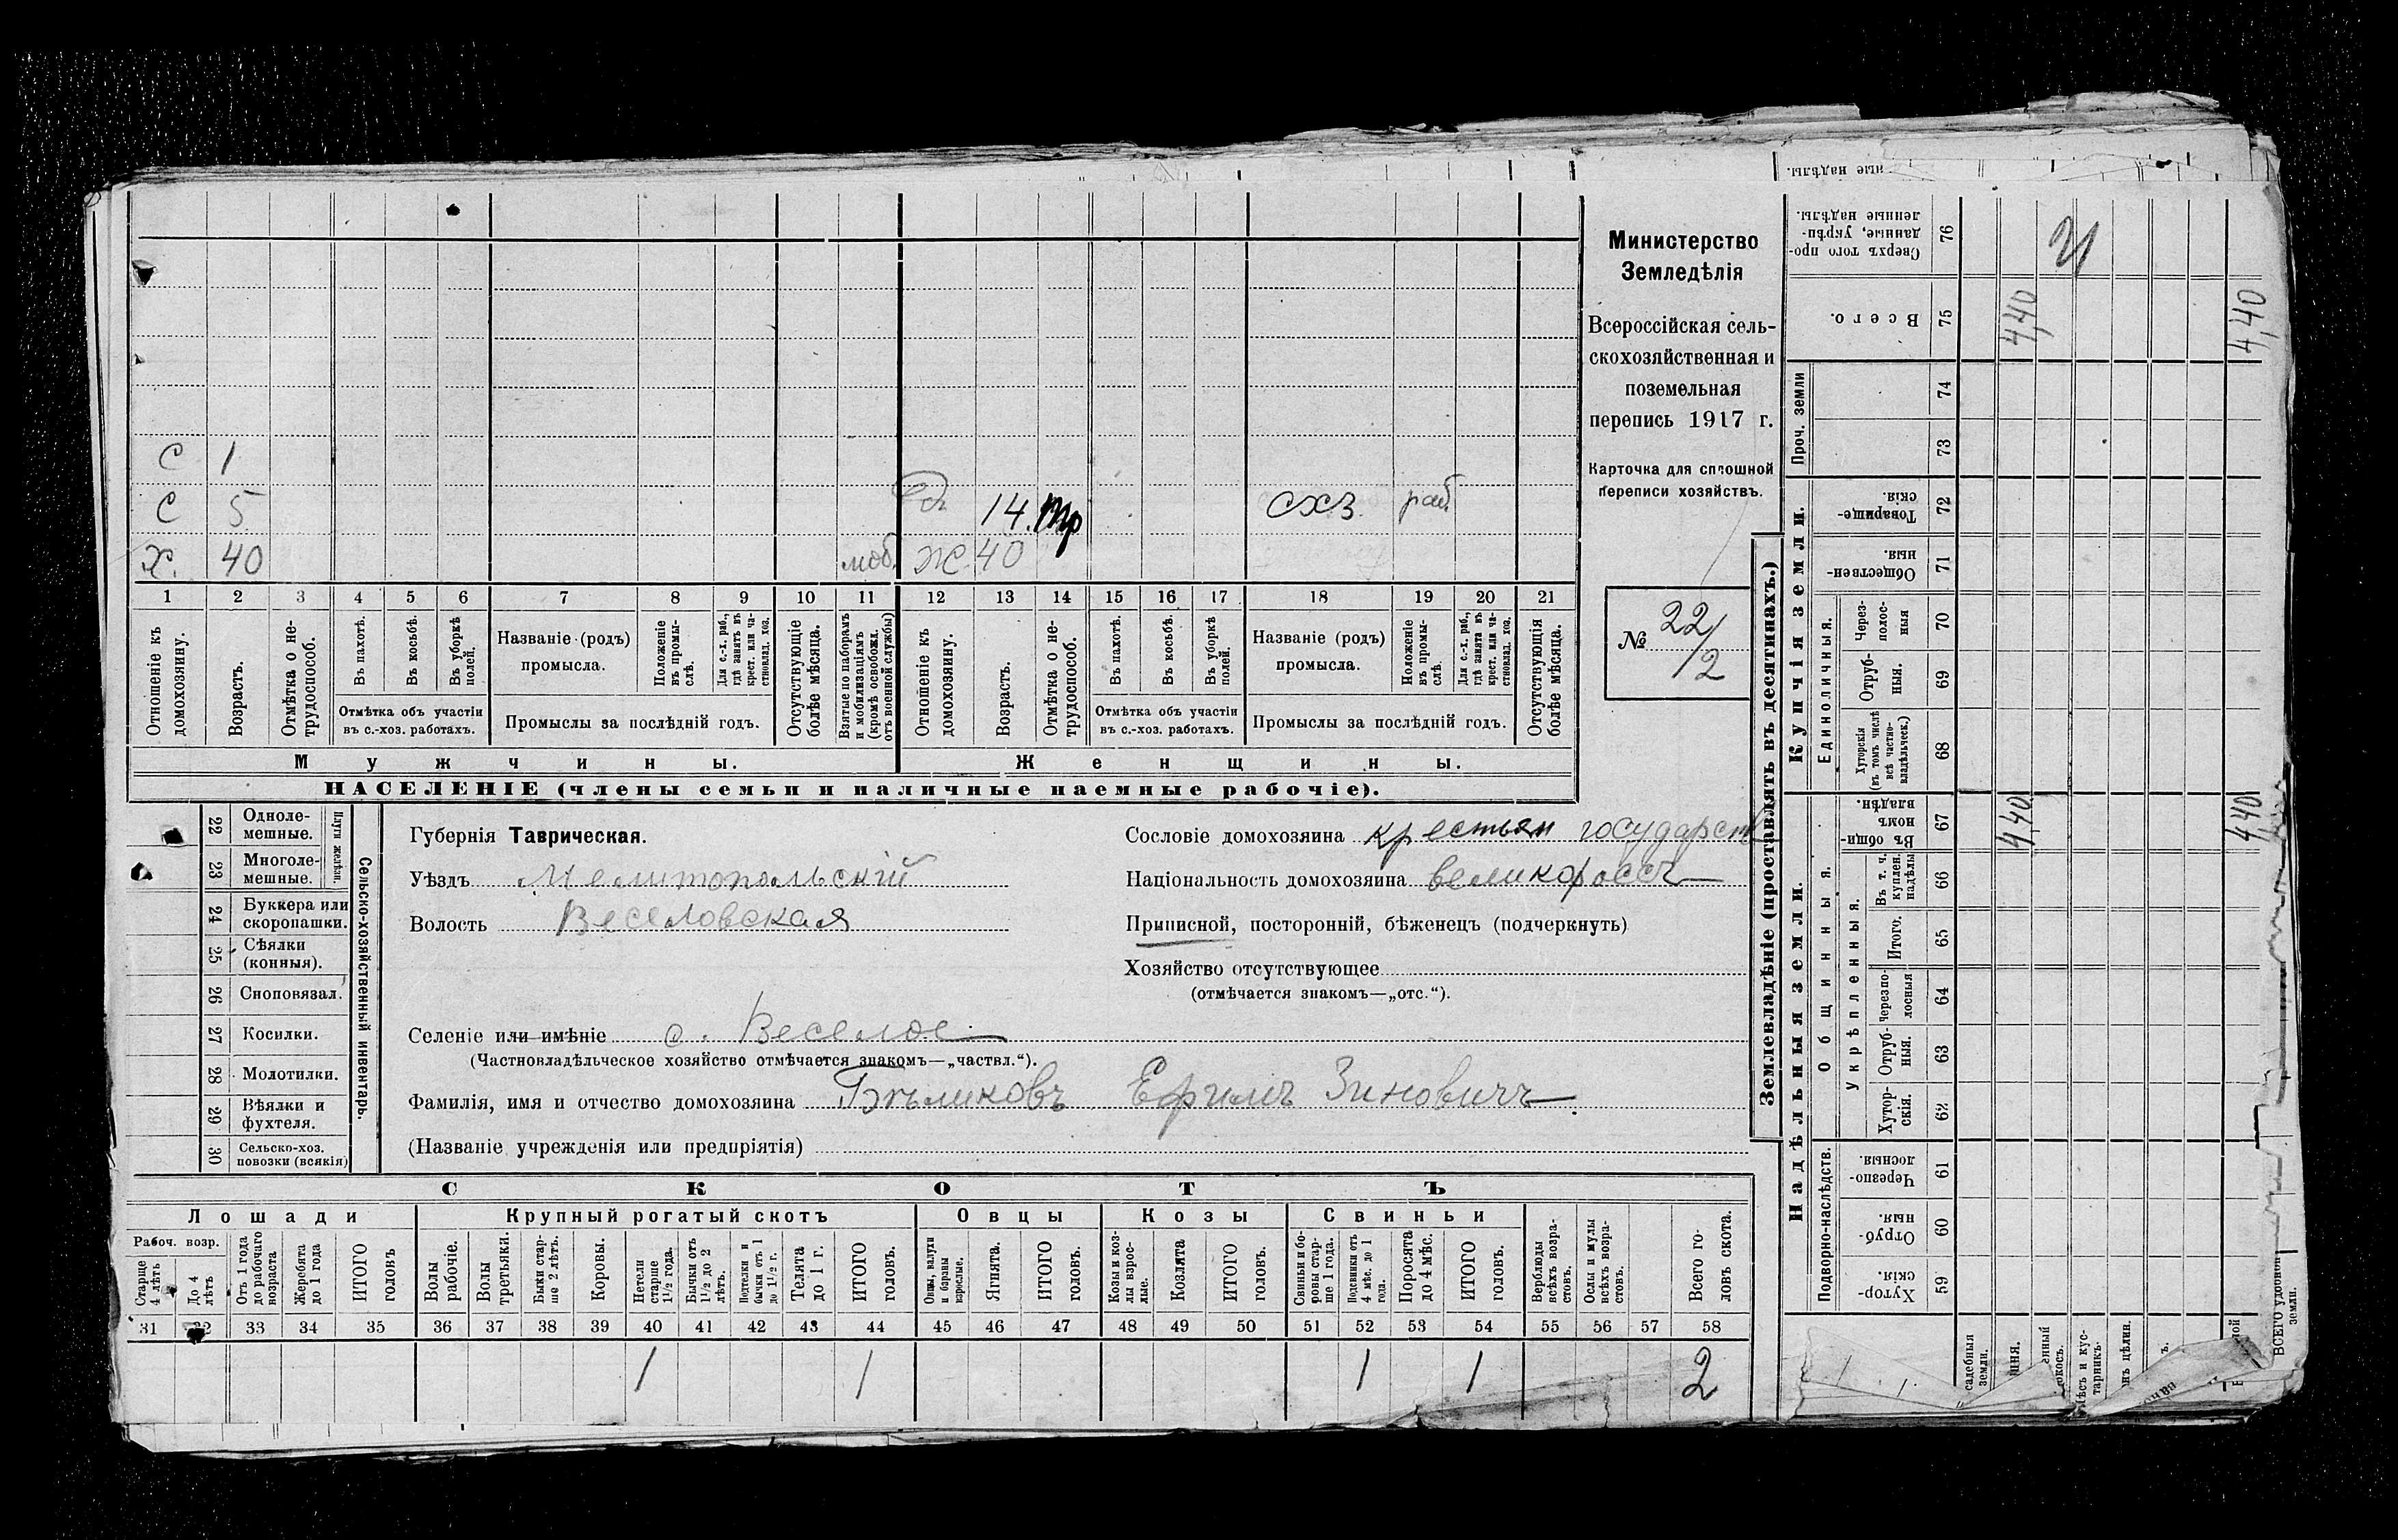 С 1
С 5 14. СХЗ раб
Х. 40 моб. Ж 40
1 2 3 4 5 6 7 8 9 10 11 12 13 14 15 16 17 18 19 20 21
Отношеніе къ домохозяину.
Возрастъ.
Отмѣтка о не-трудоспособ.
Въ пахотѣ.
Въ косьбѣ.
Въ уборкѣ полей.
Отмѣтка объ участіи
въ с.-хоз. работахъ.
Названіе (родъ)
промысла.
Положеніе въ промы-слѣ.
Для с.-х. раб., гдѣ занятъ въ крест. или ча-стновлад. хоз.
Промыслы за послѣдній годъ.
Отсутствующіе болѣе мѣсяца.
Взятые по наборамъ и мобилизаціямъ (кромѣ освобожд. отъ военной службы)
Отношеніе къ домохозяину.
Возрастъ.
Отмѣтка о не-трудоспособ.
Въ пахотѣ.
Въ косьбѣ.
Въ уборкѣ полей.
Отмѣтка объ участіи
въ с.-хоз. работахъ.
Названіе (родъ)
промысла.
Положеніе въ промы-слѣ.
Для с.-х. раб., гдѣ занята въ крест. или ча-стновлад. хоз.
Промыслы за послѣдній годъ.
Отсутствующія болѣе мѣсяца.
Мужчины. Женщины.
НАСЕЛЕНІЕ (члены семьи и наличные наемные рабочіе).
Министерство
Земледѣлія
Всероссійская сель-
скохозяйственная и
поземельная
перепись 1917 г.
Карточка для сплошной
переписи хозяйствъ.
№ 22/2
22 Однолемешные.
23 Многолемешные.
Плуги желѣзн.
24 Буккера или скоропашки.
25 Сѣялки (конныя).
26 Сноповязал.
27 Косилки.
28 Молотилки.
29 Вѣялки и фухтеля.
30 Сельско-хоз. повозки (всякія)
Сельско-хозяйственный инвентарь.
Губернія Таврическая.
Уѣздъ Мелитопольскій
Волость Веселовская
Сословіе домохозяина крестьян государств
Національность домохозяина великороссъ
Приписной, посторонній, бѣженецъ (подчеркнуть)
Хозяйство отсутствующее
(отмѣчается знакомъ—„отс.“).
Селеніе или имѣніе с. Веселое
(Частновладѣльческое хозяйство отмѣчается знакомъ—„частвл.“).
Фамилія, имя и отчество домохозяина Бѣликовъ Ефимъ Зиновичъ
(Названіе учрежденія или предпріятія)
СКОТЪ
Лошади Крупный рогатый скотъ Овцы Козы Свиньи
Рабоч. возр.
Старше 4 лѣтъ
До 4 лѣтъ
Отъ 1 года до рабочаго возраста
Жеребята до 1 года
ИТОГО головъ
Волы рабочіе.
Волы третьяки.
Быки стар-ше 2 лѣтъ.
Коровы.
Нетели старше 1½ года.
Бычки отъ 1½ до 2 лѣтъ.
Подтелки и бычки отъ 1 до 1½ г.
Телята до 1 г.
ИТОГО головъ.
Овцы, валухи и бараны взрослые.
Ягнята.
ИТОГО головъ.
Козы и коз-лы взрос-лые.
Козлята
ИТОГО головъ.
Свиньи и бо-ровы стар-ше 1 года.
Подсвинки отъ 4 мѣс. до 1 года.
Поросята до 4 мѣс.
ИТОГО головъ.
Верблюды всѣхъ возра-стовъ.
Ослы и мулы всѣхъ возра-стовъ.
Всего го-ловъ скота.
31 32 33 34 35 36 37 38 39 40 41 42 43 44 45 46 47 48 49 50 51 52 53 54 55 56 57 58
1 1 1 1 2
Землевладѣніе (проставлять въ десятинахъ.)
ные надѣлы.
Сверхъ того про-данные, укрѣп-ленные надѣлы. 76
Всего. 75 4,40 4,40
Проч. земли 74
73
Купчія земли.
Товарище-скія. 72
Обществен-ныя. 71
Единоличныя.
Через-полос-ныя 70
Отруб-ныя. 69
Хуторскія (въ томъ числѣ всѣ частно-владѣльческ.) 68
Надѣльныя земли.
Общинныя.
Въ общи-номъ владѣн. 67 4,40 4,40
Укрѣпленныя.
Въ т. ч. куплен. надѣлы 66
Итого. 65
Черезпо-лосныя 64
Отруб-ныя. 63
Хутор-скія. 62
Подворно-наслѣдств.
Черезпо-лосныя. 61
Отруб-ныя. 60
Хутор-скія. 59
садебныя земли.
ВСЕГО удобной земли.